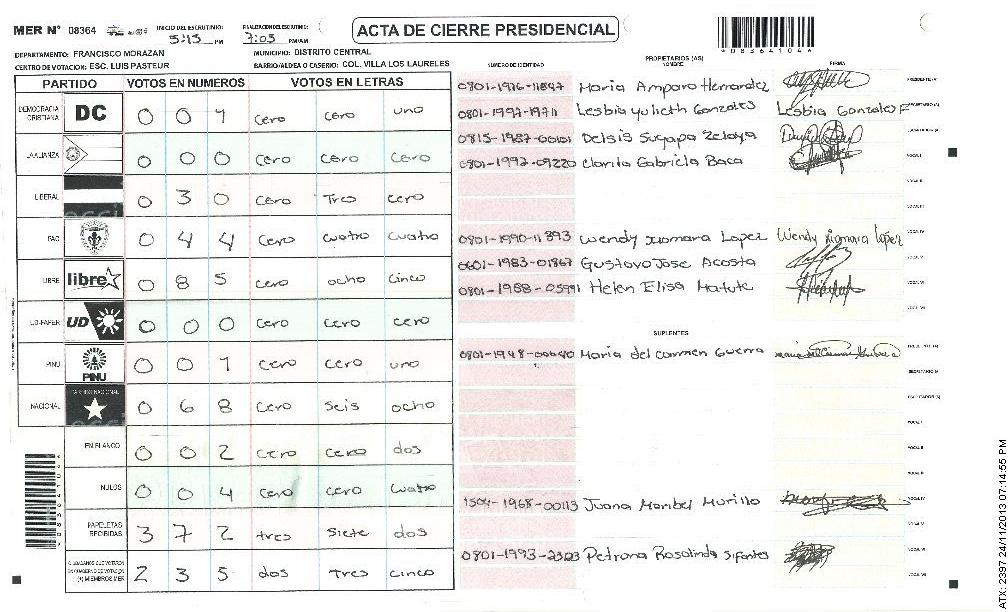 MER N° 08364
INICIO DEL ESCRUTINIO: 5:15 PM
FINALIZACION DEL ESCRUTINIO: 7:05 PM/AM
ACTA DE CIERRE PRESIDENCIAL
DEPARTAMENTO: FRANCISCO MORAZAN
MUNICIPIO: DISTRITO CENTRAL
CENTRO DE VOTACION: ESC. LUIS PASTEUR
BARRIO/ALDEA O CASERIO: COL. VILLA LOS LAURELES
PARTIDO VOTOS EN NUMEROS VOTOS EN LETRAS
DEMOCRACIA CRISTIANA DC 0 0 1 cero cero uno
LA ALIANZA 0 0 0 cero cero cero
LIBERAL 0 3 0 cero Tres cero
PAC 0 4 4 cero cuatro cuatro
LIBRE libre 0 8 5 cero ocho cinco
UD-FAPER UD 0 0 0 cero cero cero
PINU PINU 0 0 1 cero cero uno
NACIONAL PARTIDO NACIONAL 0 6 8 cero seis ocho
EN BLANCO 0 0 2 cero cero dos
NULOS 0 0 4 cero cero cuatro
PAPELETAS RECIBIDAS 3 7 2 tres siete dos
CIUDADANOS QUE VOTARON EN CUADERNO DE VOTACION (+) MIEMBROS MER 2 3 5 dos Tres cinco
NUMERO DE IDENTIDAD
PROPIETARIOS (AS) NOMBRE
FIRMA
0801-1976-11847 Maria Amparo Hernandez PRESIDENTE (A)
0801-1997-19711 Lesbia yolieth Gonzales Lesbia Gonzales F SECRETARIO (A)
0815-1987-00101 Delsis Suyapa Zelaya
0801-1992-09220 Clarita Gabriela Baca VOCAL I
VOCAL II
VOCAL III
0801-1990-11893 Wendy Xiomara Lopez Wendy Xiomara lopez VOCAL IV
0601-1983-01867 Gustavo Jose Acosta VOCAL V
0801-1988-05991 Helen Elisa Matute VOCAL VI
VOCAL VII
SUPLENTES
0801-1948-00640 Maria del carmen Guerra PRESIDENTE (A)
SECRETARIO (A)
ESCRUTADOR (A)
VOCAL I
VOCAL II
VOCAL III
1504-1968-00113 Juana Maribel Murillo VOCAL IV
VOCAL V
0801-1993-2303 Petrona Rosalinda Sifontes VOCAL VI
VOCAL VII
ATX: 2397 24/11/2013 07:14:55 PM